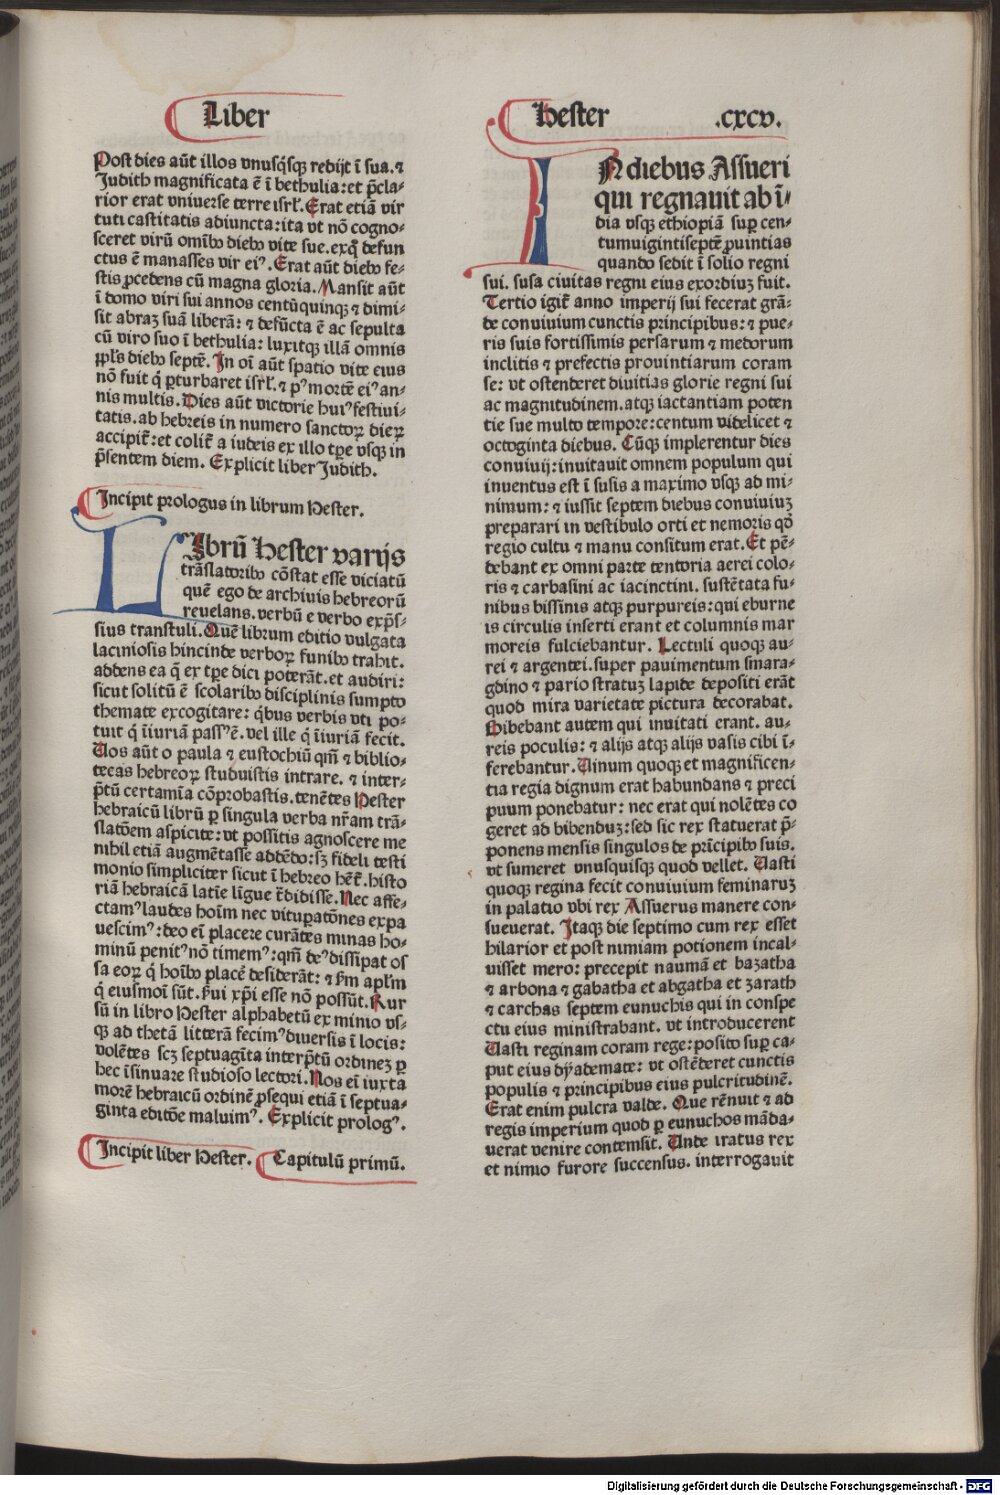 Liber
Post dies aūt illos vnusq̄sq̨ redijt ī sua.⁊
Judith magnificata ē ī bethulia:et p̄cla⸗
rior erat vniuerse terre isrl̄.Erat etiā vir
tuti castitatis adiuncta:ita vt nō cogno⸗
sceret virū omībꝫ diebꝫ vite sue.exq̄ defun
ctus ē manasses vir eiꝰ.Erat aūt diebꝫ fe⸗
stis ꝓcedens cū magna gloria.Mansit aūt
ī domo viri sui annos centūquinqꝫ ⁊ dimi⸗
sit abraꝫ suā liberā: ⁊ defūcta ē ac sepulta
cū viro suo ī bethulia: luxitqꝫ illā omnis
ppl̄s diebꝫ septē. In oī aūt spatio vite eius
nō fuit q̄ ꝑturbaret isrl̄.⁊ pꝰ mortē eiꝰ an⸗
nis multis.Dies aūt victorie huiꝰ festiui⸗
tatis.ab hebreis in numero sanctoꝝ dieꝝ
accipit̄:et colit̄ a iudeis ex illo tꝑe vsqꝫ in
p̄sentem diem. Explicit liber Judith.
Incipit prologus in librum Hester.
Librū Hester varijs
trāslatoribꝫ cōstat esse viciatū
quē ego de archiuis hebreorū
reuelans.verbū e verbo exp̄s⸗
sius transtuli.Quē librum editio vulgata
laciniosis hincinde verboꝝ funibꝫ trahit.
addens ea q̄ ex tꝑe dici poterāt.et audiri:
sicut solitū ē scolaribꝫ disciplinis sumpto
themate excogitare: q̄bus verbis vti po⸗
tuit q̄ īiuriā passꝰē.vel ille q̄ īiuriā fecit.
Uos aūt o paula ⁊ eustochiū qm̄ ⁊ biblio⸗
tecas hebreoꝝ studuistis intrare. ⁊ inter⸗
p̄tū certamīa cōprobastis.tenētes Hester
hebraicū librū ꝑ singula verba nr̄am trā⸗
slatōem aspicite: vt possitis agnoscere me
nihil etiā augmētasse addēdo:sꝫ fideli testi
monio simpliciter sicut ī hebreo hēt̄.histo
riā hebraicā latīe līgue t̄didisse.Nec affe⸗
ctamꝰlaudes hoīm nec vituꝑatōnes expa
uescimꝰ:deo eī placere curātes minas ho⸗
minū penitꝰnō timemꝰ:qm̄ deꝰdissipat os
sa eoꝝ q̄ hoībꝫ placē desiderāt: ⁊ ẜm apl̄m
q̄ eiusmoi sūt. ẜui xp̄i esse nō possūt.Rur
sū in libro Hester alphabetū ex minio vs⸗
qꝫ ad thetā litterā fecimꝰdiuersis ī locis:
volētes scꝫ septuagīta interp̄tū ordinez ꝑ
hec īsinuare studioso lectori.Nos eī iuxta
morē hebraicū ordinē ꝓsequi etiā ī septua⸗
ginta editōe maluimꝰ. Explicit prologꝰ.
Incipit liber Hester. Capitulū primū.
Hester .cxcv.
IN diebus Assueri
qui regnauit ab ī⸗
dia vsqꝫ ethiopiā suꝑ cen⸗
tumuigintiseptē ꝓuintias
quando sedit ī solio regni
sui. susa ciuitas regni eius exordiuꝫ fuit.
Tertio igit̄ anno imperij sui fecerat grā⸗
de conuiuium cunctis principibus: ⁊ pue⸗
ris suis fortissimis persarum ⁊ medorum
inclitis ⁊ prefectis prouintiarum coram
se: vt ostenderet diuitias glorie regni sui
ac magnitudinem.atqꝫ iactantiam poten
tie sue multo tempore:centum videlicet ⁊
octoginta diebus. Cūqꝫ implerentur dies
conuiuij:inuitauit omnem populum qui
inuentus est ī susis a maximo vsqꝫ ad mi⸗
nimum: ⁊ iussit septem diebus conuiuiuꝫ
preparari in vestibulo orti et nemoris qd̄
regio cultu ⁊ manu consitum erat.Et pē⸗
debant ex omni parte tentoria aerei colo⸗
ris ⁊ carbasini ac iacinctini. sustētata fu⸗
nibus bissinis atqꝫ purpureis:qui eburne
is circulis inserti erant et columnis mar
moreis fulciebantur. Lectuli quoqꝫ au⸗
rei ⁊ argentei.super pauimentum smara⸗
gdino ⁊ pario stratuꝫ lapide depositi erāt
quod mira varietate pictura decorabat.
Bibebant autem qui inuitati erant. au⸗
reis poculis: ⁊ alijs atqꝫ alijs vasis cibi ī⸗
ferebantur.Uinum quoqꝫ et magnificen⸗
tia regia dignum erat habundans ⁊ preci
puum ponebatur: nec erat qui nolētes co
geret ad bibenduꝫ:sed sic rex statuerat p̄⸗
ponens mensis singulos de prīcipibꝫ suis.
vt sumeret vnusquisqꝫ quod vellet. Uasti
quoqꝫ regina fecit conuiuium feminaruꝫ
in palatio vbi rex Assuerus manere con⸗
sueuerat. Itaqꝫ die septimo cum rex esset
hilarior et post nimiam potionem incal⸗
uisset mero: precepit naumā et bazatha
⁊ arbona ⁊ gabatha et abgatha et zarath
⁊ carchas septem eunuchis qui in conspe
ctu eius ministrabant. vt introducerent
Uasti reginam coram rege:posito suꝑ ca⸗
put eius dyademate: vt ostēderet cunctis
populis ⁊ principibus eius pulcritudinē.
Erat enim pulcra valde. Que rēnuit ⁊ ad
regis imperium quod ꝑ eunuchos māda⸗
uerat venire contemsit. Unde iratus rex
et nimio furore succensus. interrogauit
Digitalisierung gefördert durch die Deutsche Forschungsgemeinschaft - DFG